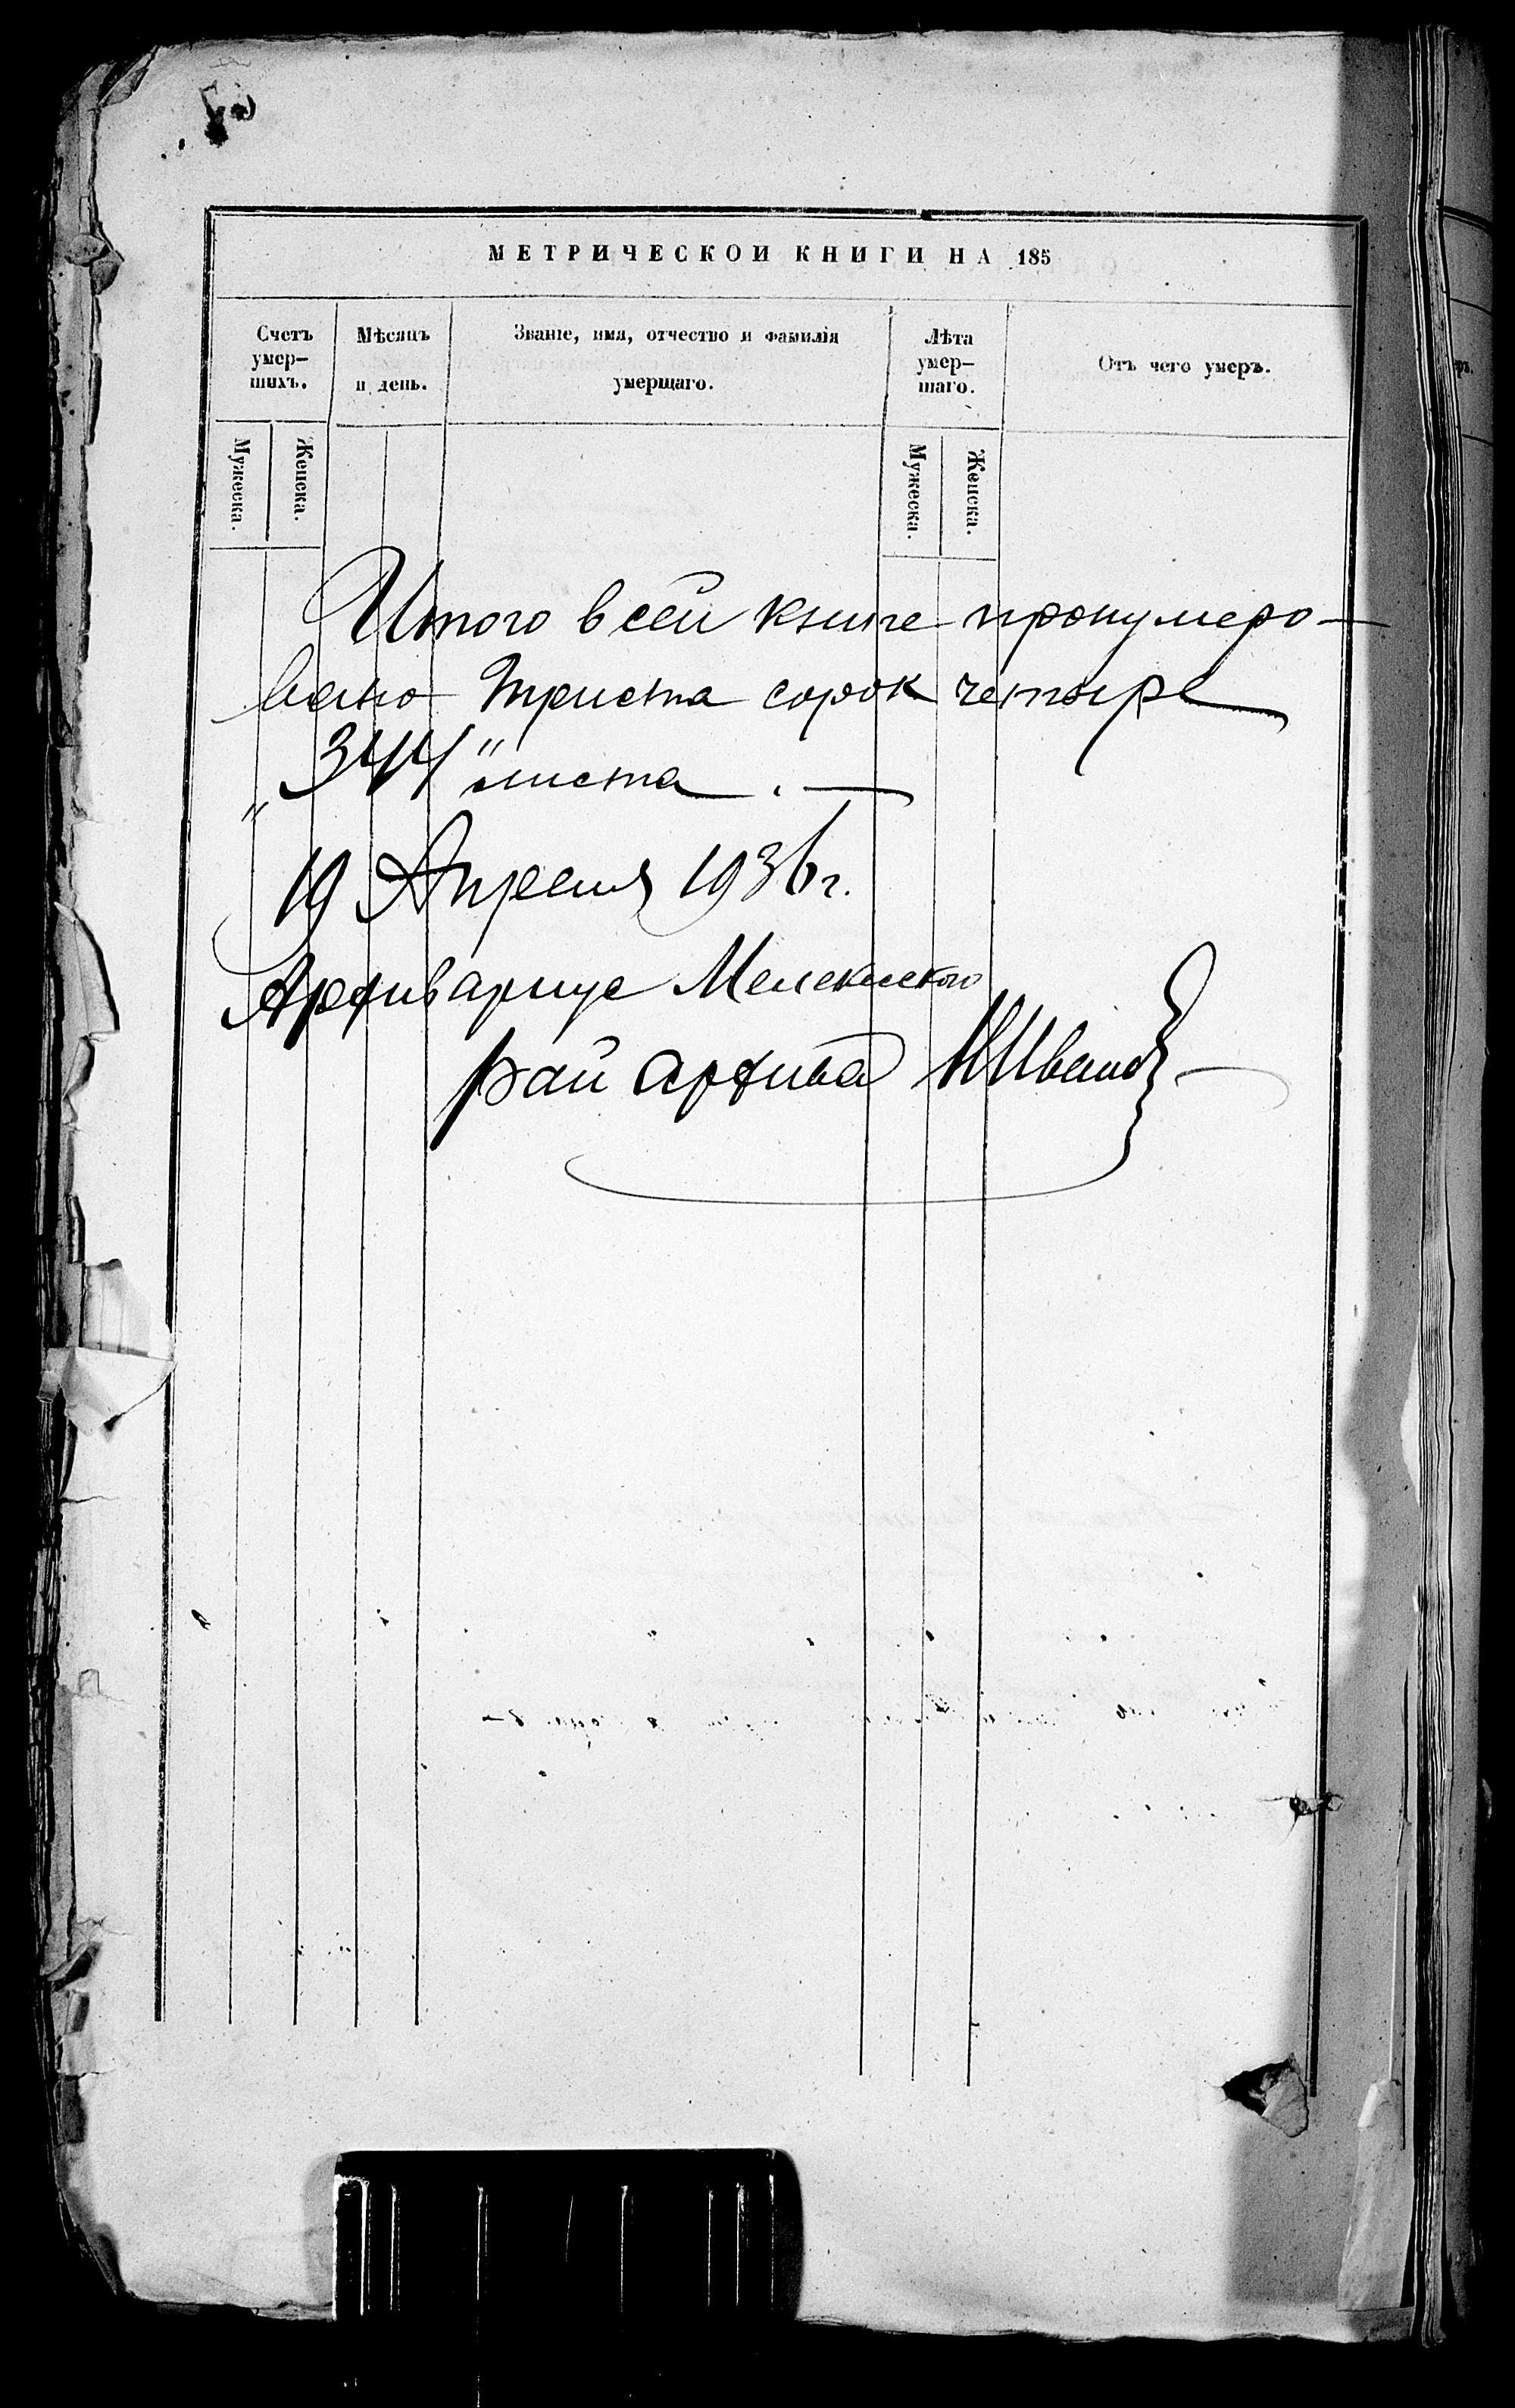 МЕТРИЧЕСКОЙ КНИГИ НА 185
Счетъ умер-
шихъ.
Мѣсяцъ
и день.
Званіе, имя, отчество и фамилія
умершаго.
Лѣта
умер-
шаго.
Отъ чего умеръ.
Мужеска.
Женска.
Мужеска.
Женска.
Итого в сей книге пронумеро-
вано триста сорок четыре
„344" листа.
19 Апреля 1936 г.
Архивариус Меленковского
рай архива НИванов